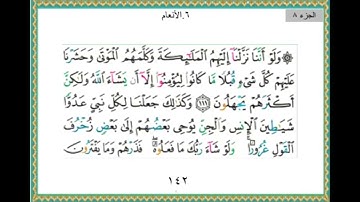 الجزء ٨
٦.الأنعام
۞ وَلَوْ أَنَّنَا نَزَّلْنَا إِلَيْهِمُ الْمَلَٰٓئِكَةَ وَكَلَّمَهُمُ الْمَوْتَىٰ وَحَشَرْنَا
عَلَيْهِمْ كُلَّ شَىْءٍ قُبُلًا مَّا كَانُوا۟ لِيُؤْمِنُوٓا۟ إِلَّآ أَن يَشَآءَ اللَّهُ وَلَٰكِنَّ
أَكْثَرَهُمْ يَجْهَلُونَ ﴿١١١﴾ وَكَذَٰلِكَ جَعَلْنَا لِكُلِّ نَبِىٍّ عَدُوًّا
شَيَٰطِينَ الْإِنسِ وَالْجِنِّ يُوحِى بَعْضُهُمْ إِلَىٰ بَعْضٍ زُخْرُفَ
الْقَوْلِ غُرُورًا ۚ وَلَوْ شَآءَ رَبُّكَ مَا فَعَلُوهُ ۖ فَذَرْهُمْ وَمَا يَفْتَرُونَ
١٤٢